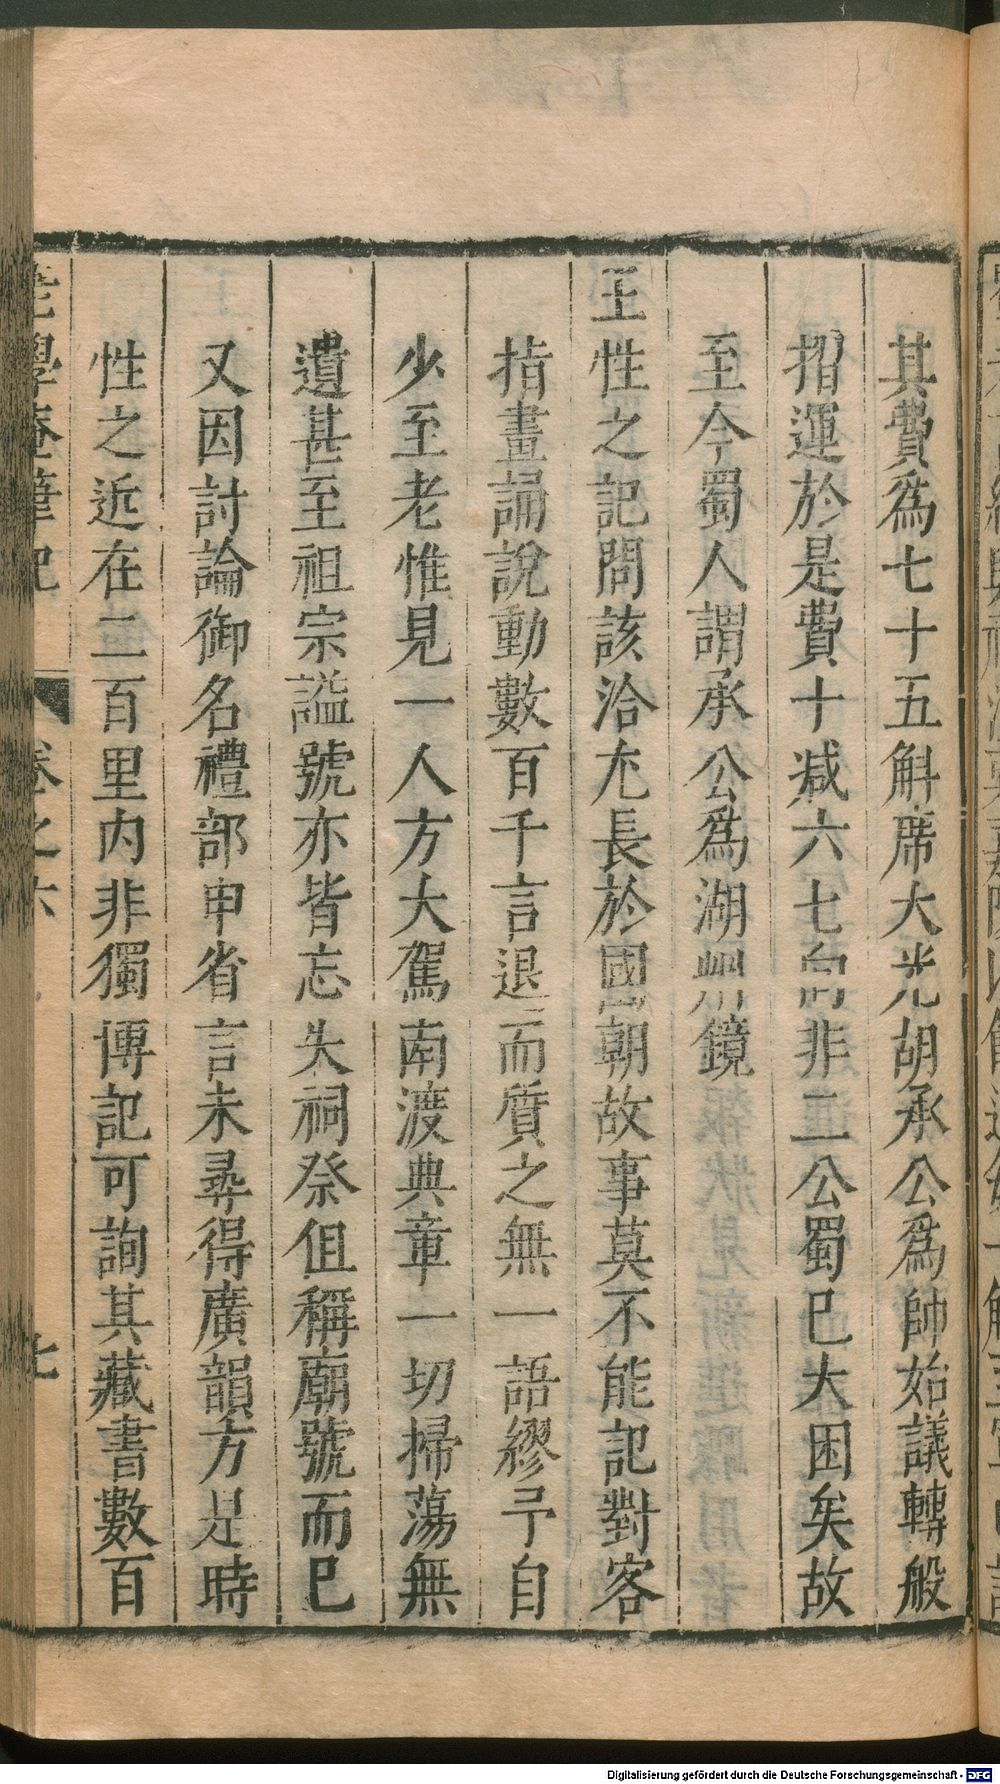 其費爲七十五斛席大光胡承公爲帥始議轉般
摺運於是費十减六七向非二公蜀已大困矣故
至今蜀人謂承公爲湖州鏡
王性之記問該洽尤長於國朝故事莫不能記對客
指畫誦說動數百千言退而質之無一語繆予自
少至老惟見一人方大駕南渡典章一切掃蕩無
遺甚至祖宗謚號亦皆忘失祠祭但稱廟號而已
又因討論御名禮部申省言未尋得廣韻方是時
性之近在二百里内非獨博記可詢其藏書數百
老學庵筆記 卷之六 七
Digitalisierung gefördert durch die Deutsche Forschungsgemeinschaft - DFG